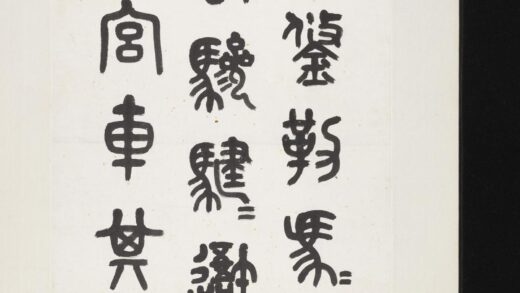 鋚勒馬=
驂騝=
宮車其